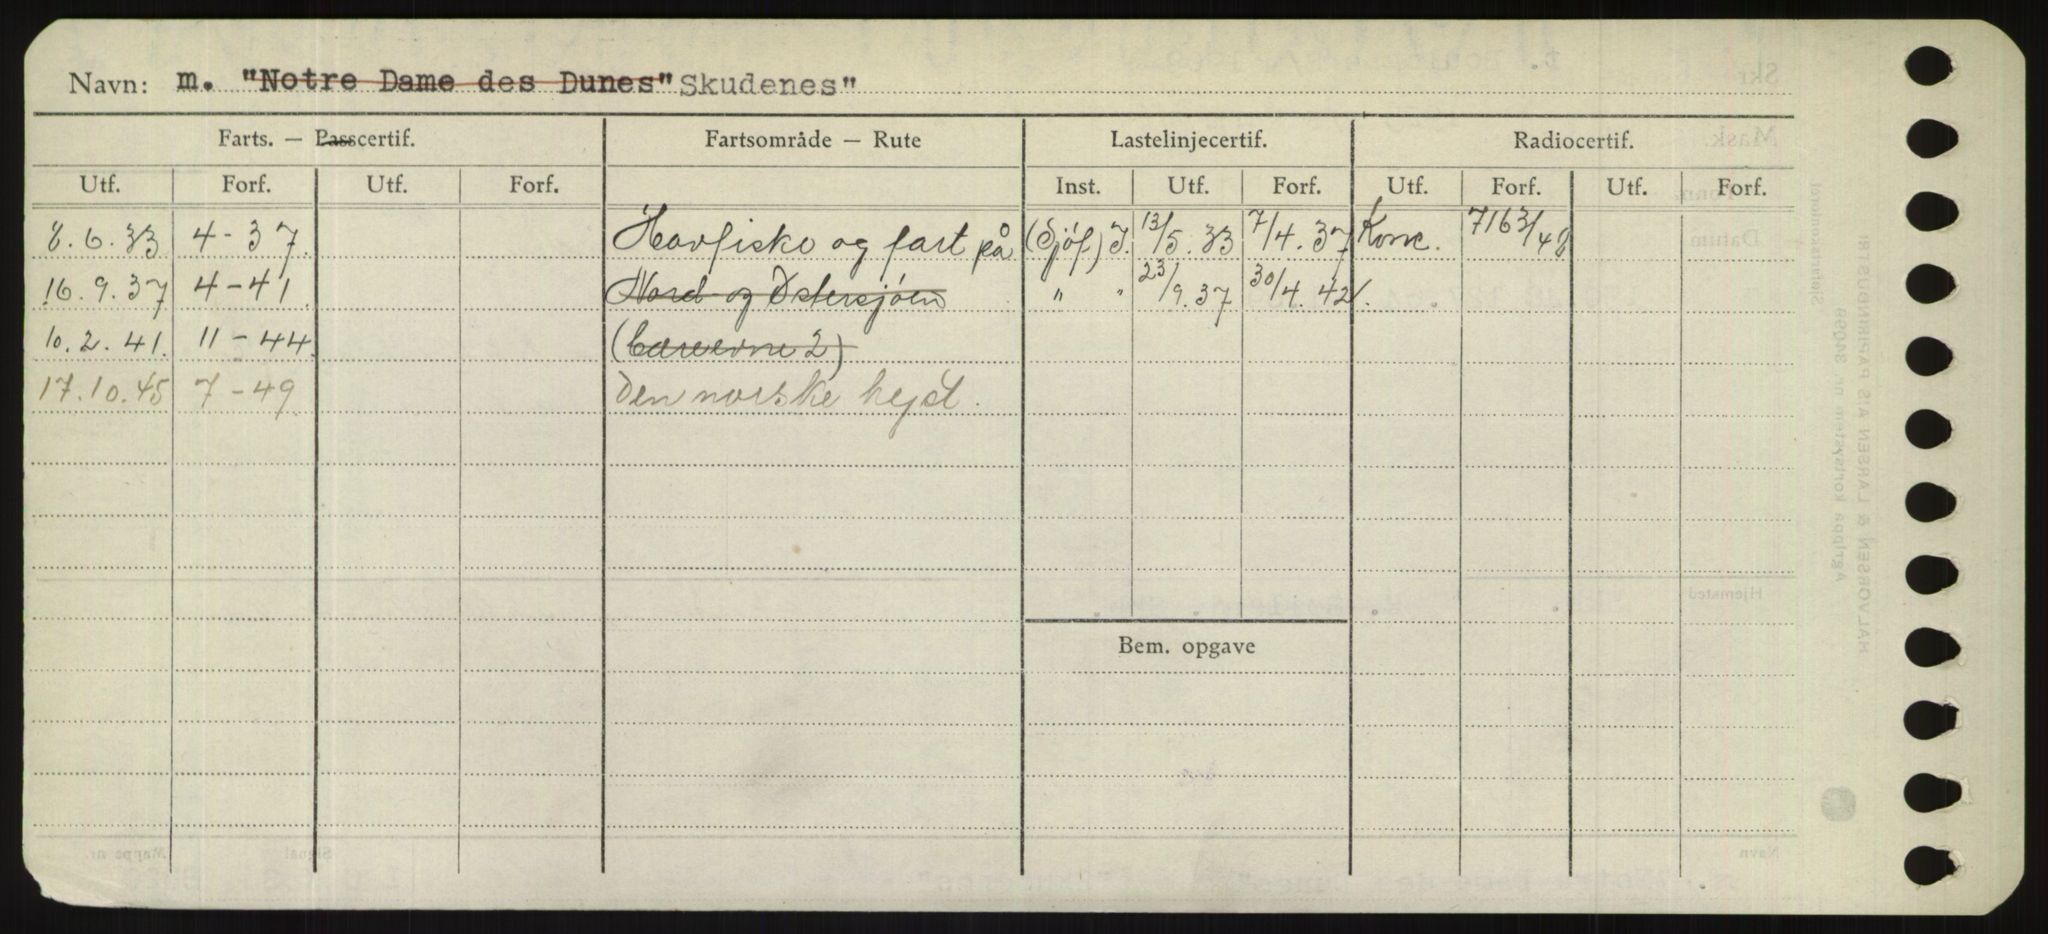 Navn: m. "Notre Dame des Dunes" Skudenes"
Farts. — Passcertif. Fartsområde — Rute Lastelinjecertif. Radiocertif.
Utf. Forf. Utf. Forf. Inst. Utf. Forf. Utf. Forf. Utf. Forf.
8.6.33 4-37. Havfiske og fart på (Sjøf) I. 13/5.33 7/4.37 Konv.
16.9.37 4-41 Nord- og Østersjøen " " 23/9.37 30/4.42
10.2.41. 11-44
17.10.45 7-49 Den norske kyst.
Bem. opgave